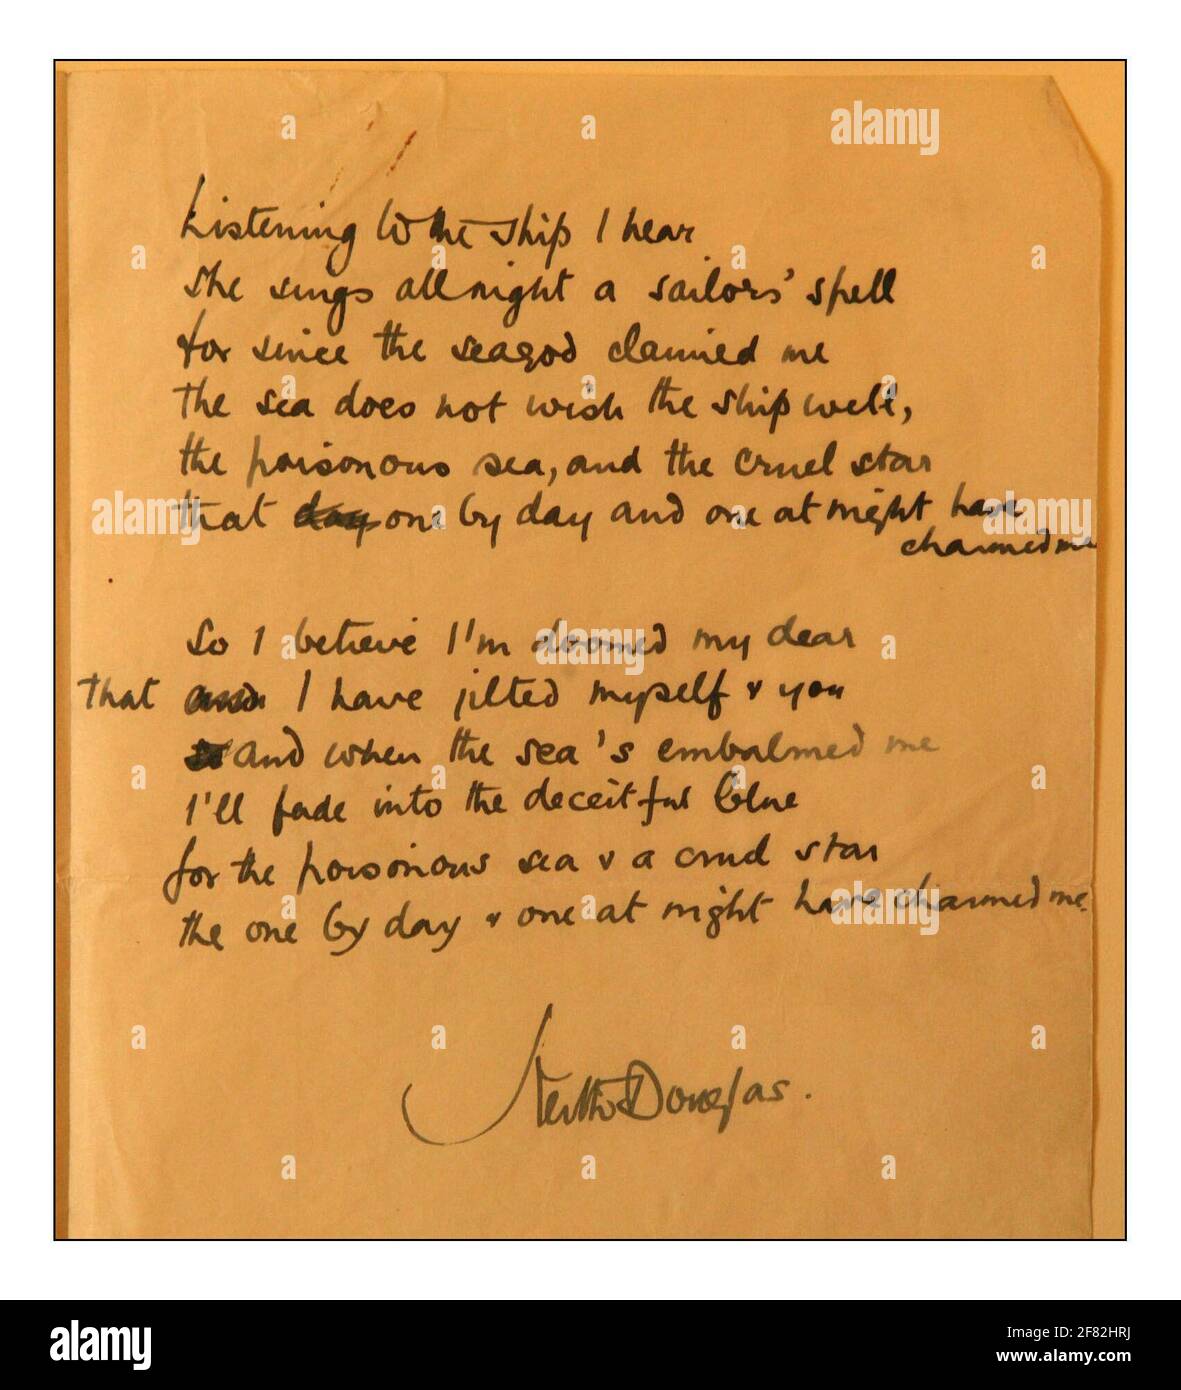 Listening to the ship I hear
she sings all night a sailors' spell
for since the seagod claimed me
the sea does not wish the ship well,
the poisonous sea, and the cruel star
that day one by day and one at night have
charmed me
So I believe I'm doomed my dear
that and I have jilted myself & you
and when the sea's embalmed me
I'll fade into the deceitful blue
for the poisonous sea & a cruel star
the one by day & one at night have charmed me.
Keith Douglas.
alamy
a
alamy
Image ID: 2F82HRJ
www.alamy.com